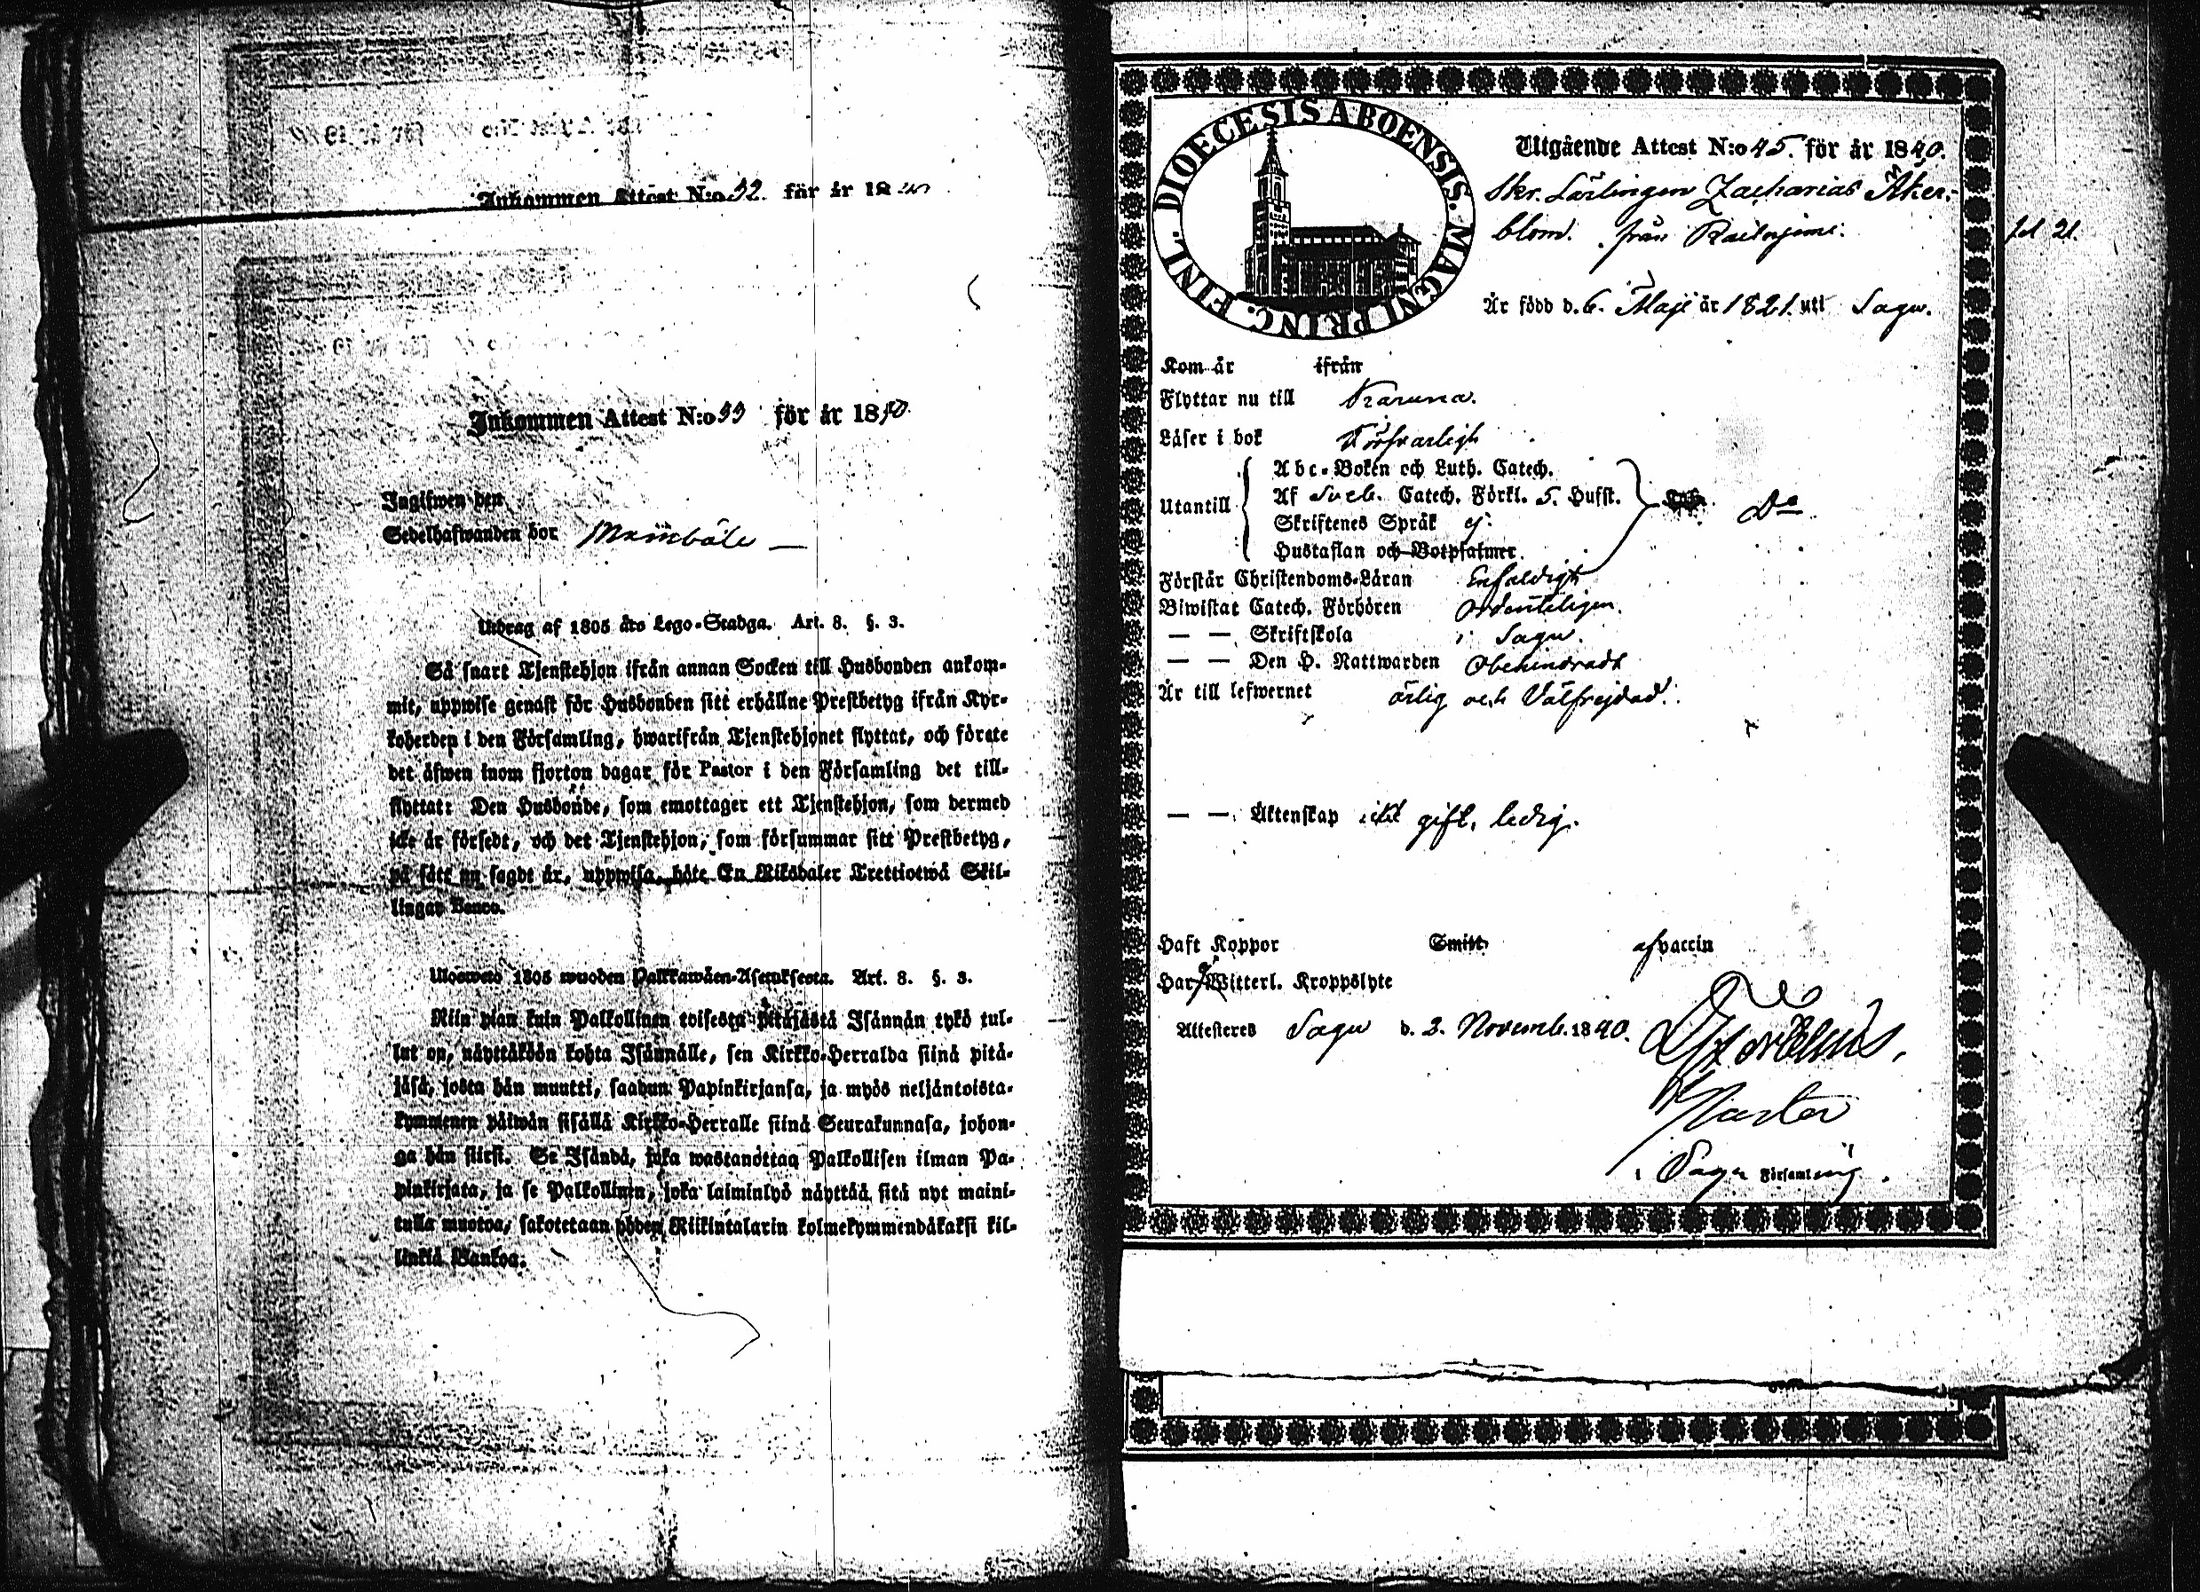 Inkommen Attest N:o 32 för år 18
Inkommen Attest N:o 33 för år 1840.
Ingifwen den
Sedelhafwanden bor
Utdrag af 1805 års Lego-Stadga. Art. 8. §. 3.
Så snart Tjenstehjon ifrån annan Socken till Husbonden ankom-
mit, uppwise genast för Husbonden sitt erhållne Prestbetyg ifrån Kyr-
koherden i den Församling, hwarifrån Tjenstehjonet flyttat, och förete
det äfwen inom fjorton dagar för Pastor i den Församling det till-
flyttat: Den Husbonde, som emottager ett Tjenstehjon, som dermed
icke är försedt, och det Tjenstehjon, som försummar sitt Prestbetyg,
på sätt nu sagdt är, uppwisa, böte En Riksdaler Trettiotwå Skil-
lingar Banco.
Ulosweto 1805 wuoden Palkkawäen-Asetuksesta. Art. 8. §. 3.
Niin pian kuin Palkollinen toisesta pitäjästä Isännän tykö tul-
lut on, näyttäköön kohta Isännälle, sen Kirkko-Herralda siinä pitä-
jäsä, josta hän muutti, saadun Papinkirjansa, ja myös neljäntoista-
kymmenen päiwän sisällä Kirkko-Herralle siinä Seurakunnasa, johon-
ga hän siirsi. Se Isändä, joka wastanottaa Palkollisen ilman Pa-
pinkirjata, ja se Palkollinen, joka laiminlyö näyttää sitä nyt maini-
tulla muotoa, sakotetaan yhden Riikintalarin kolmekymmendäkaksi kil-
linkiä Bankoa.
DIOECESIS ABOENSIS. MAGNI PRINC. FINL.
Utgående Attest N:o 45. för år 1840.
Skr. Lärlingen Zacharias Åker-
blom. från
fol 21.
Är född d. 6. Maji år 1821. uti Sagu.
Kom år ifrån
Flyttar nu till Karuna.
Läser i bok Försvarligt
Abc-Boken och Luth. Catech.
Utantill Af Sveb. Catech. Förkl. 5. Hufst. Do
Skriftenes Språk ej.
Hustaflan och Botpsalmer.
Förstår Christendoms-Läran Enfaldigt
Biwistat Catech. Förhören Ordenteligen.
— — Skriftskola i Sagu.
— — Den H. Nattwarden Obehindradt
Är till lefwernet ärlig och Välfrejdad.
— — Äktenskap ej gift, ledig.
Haft Koppor Smitt. af vaccin
Har ej Witterl. Kroppslyte
Attesteres Sagu d. 2. Novemb. 1840.
Pastor
i Sagu Församling.